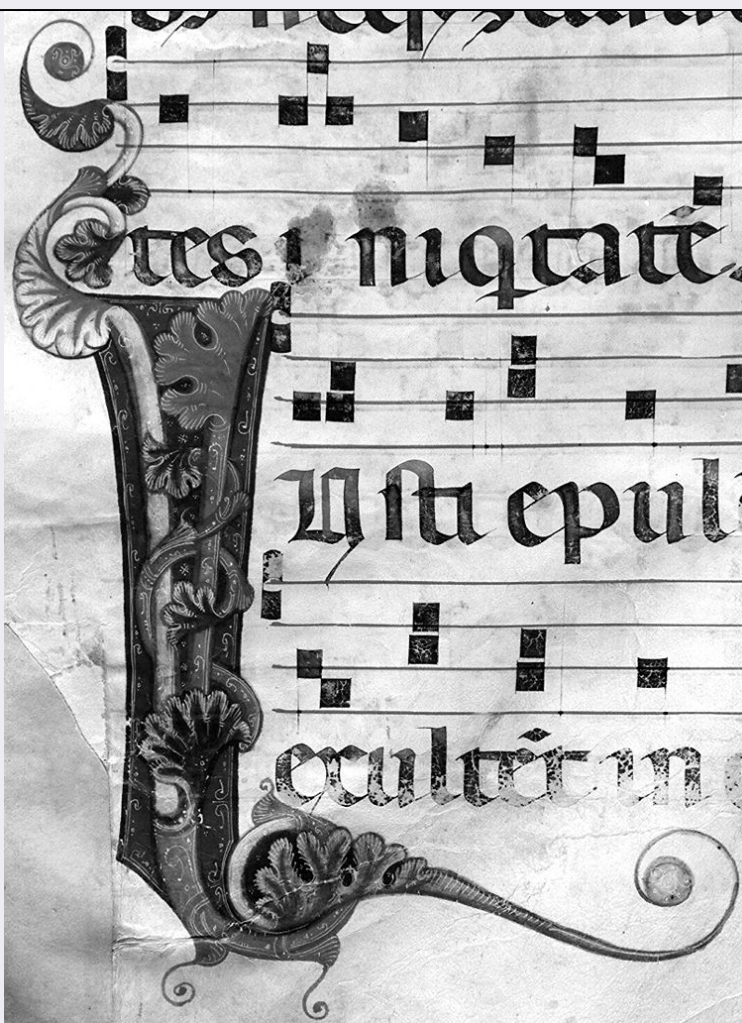 tes i niqtatē.
IUsti epul
exultēt in